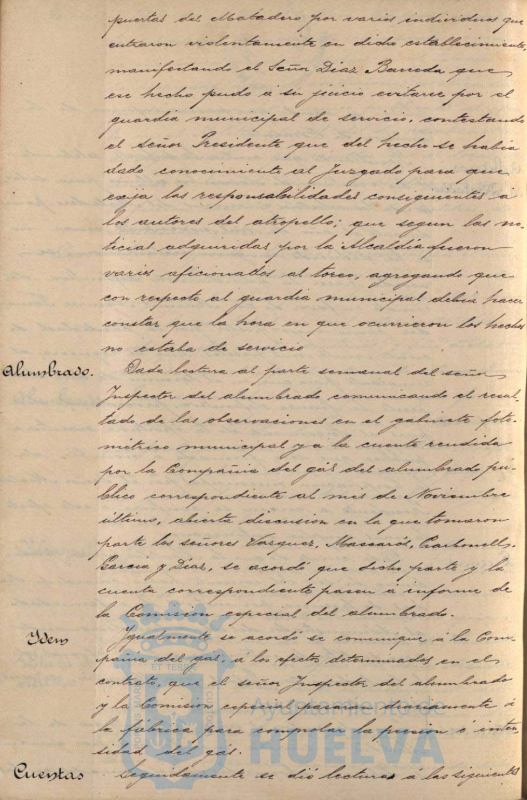 puertas del Matadero por varios individuos que
entraron violentamente en dicho establecimiento,
manifestando el Señor Diaz Barreda que
ese hecho pudo á su juicio evitarse por el
guardia municipal de servicio, contestando
el señor Presidente que del hecho se habia
dado conocimiento al Juzgado para que
exija las responsabilidades consiguientes á
los autores del atropello; que segun las no-
ticias adquiridas por la Alcaldía fueron
varios aficionados al toreo, agregando que
con respecto al guardia municipal debia hacer
constar que la hora en que ocurrieron los hechos
no estaba de servicio
Alumbrado.
Dada lectura al parte semanal del señor
Inspector del alumbrado comunicando el resul-
tado de las observaciones en el gabinete foto-
métrico municipal y a la cuenta rendida
por la Compañia del gás del alumbrado pú-
blico correspondiente al mes de Noviembre
último, abierta discusion en la que tomaron
parte los señores Vasquez, Massarós, Carbonell,
Garcia y Diaz, se acordó que dicho parte y la
cuenta correspondiente pasen á informe de
la Comision especial del alumbrado.
Idem
Igualmente se acordó se comunique á la Com-
pañia del gas, á los efectos determinados en el
contrato, que el señor Inspector del alumbrado
y la Comision especial pasarán diariamente á
la fábrica para comprobar la presion é inten-
sidad del gás.
Cuentas
Seguidamente se dió lectura á las siguientes
Ayuntamiento de
HUELVA